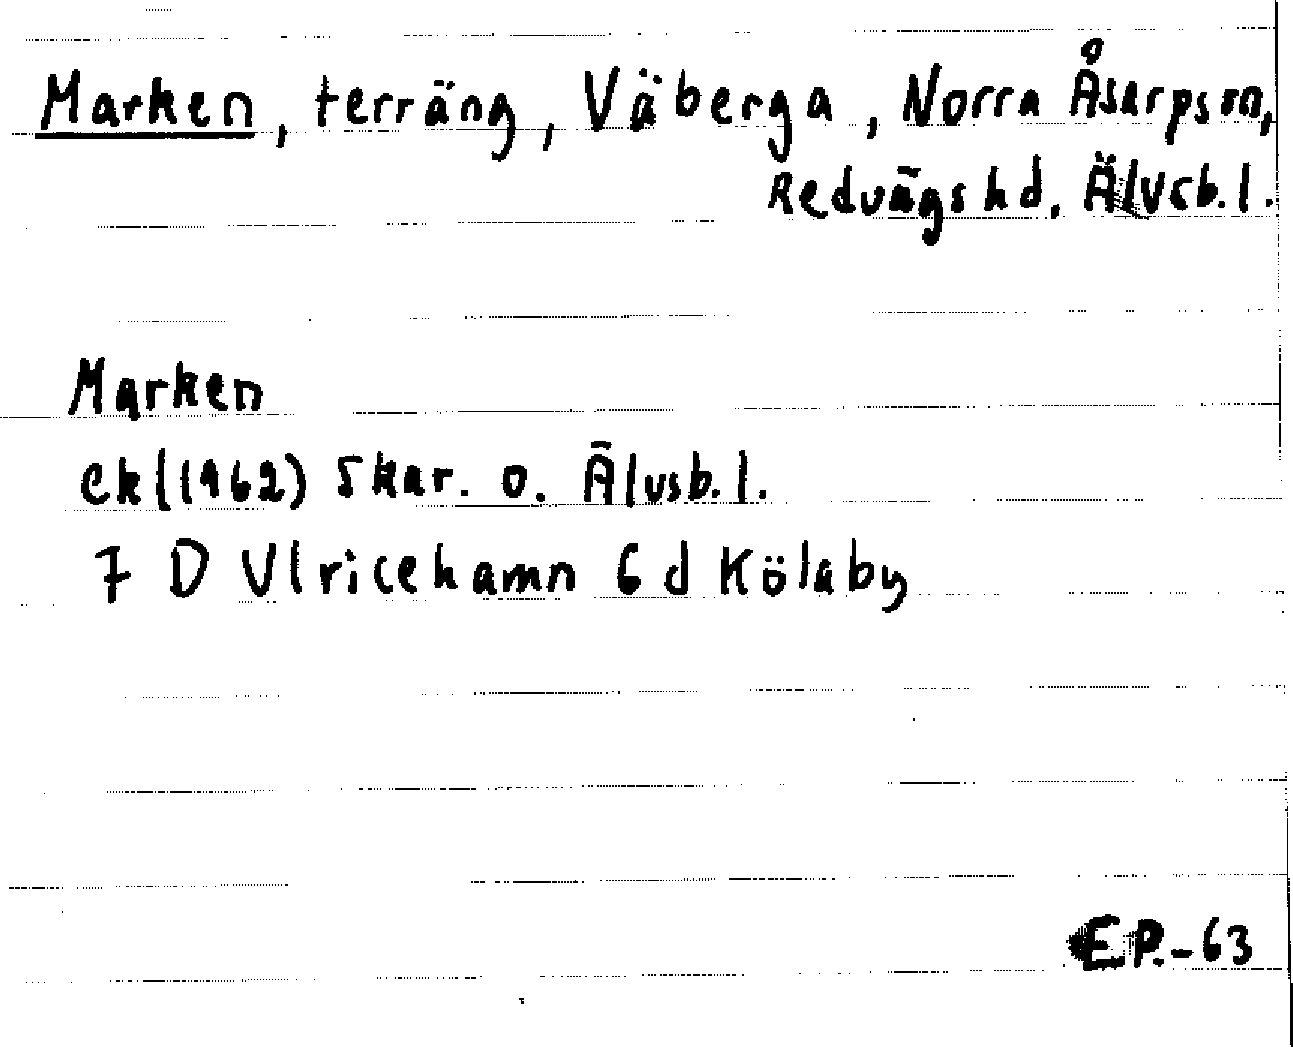 Marken, terräng, Väberga, Norra Åsarps sn,
Redvägs hd, Älvsb. l.
Marken
ekl (1962) Skar. o. Älvsb. l.
7 D Ulricehamn 6 d Kölaby
EP.-63